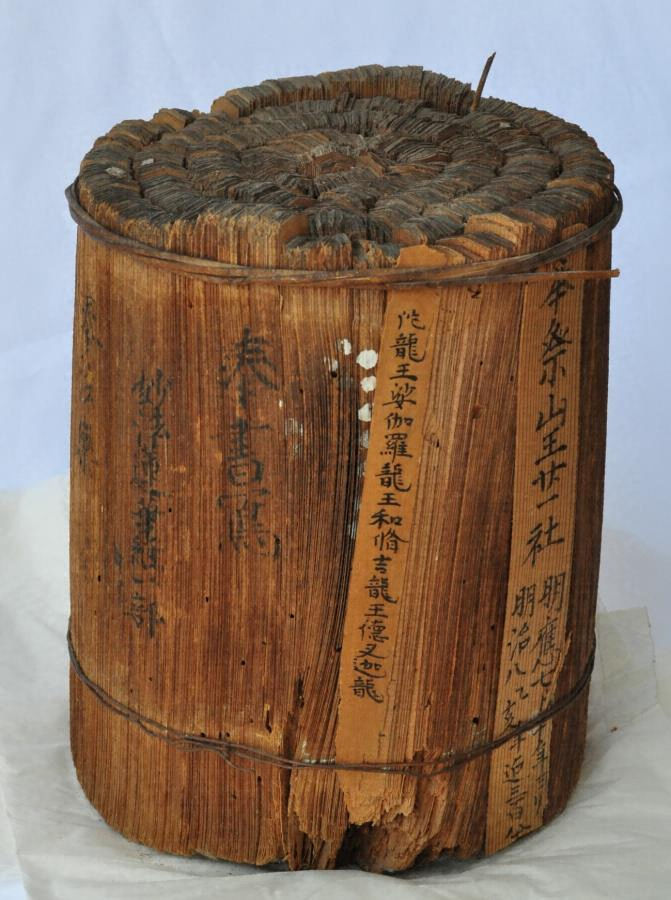 奉祭山王廿一社
明應七
明治八乙亥年迄三百
陀龍王娑伽羅龍王和脩吉龍王德叉迦龍
奉書寫
妙法蓮華經一部